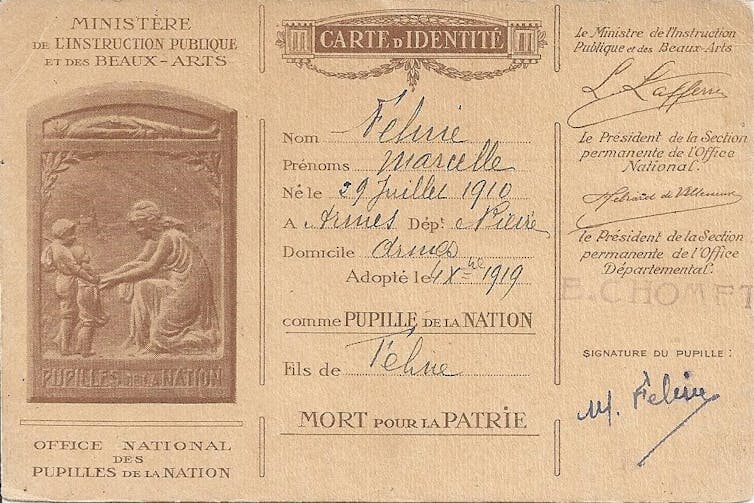 MINISTÈRE
DE L'INSTRUCTION PUBLIQUE
ET DES BEAUX-ARTS
PUPILLES DE LA NATION
OFFICE NATIONAL
DES
PUPILLES DE LA NATION
CARTE D'IDENTITÉ
Nom Féline
Prénoms Marcelle
Né le 29 Juillet 1910
A Armes Dépt Nièvre
Domicile Armes
Adopté le 4 Xbre 1919
comme PUPILLE DE LA NATION
Fils de Féline
MORT POUR LA PATRIE
Le Ministre de l'Instruction
Publique et des Beaux-Arts
L. Lafferre
Le Président de la Section
permanente de l'Office
National.
de Villeneuve
Le Président de la Section
permanente de l'Office
Départemental.
E. CHOMET
SIGNATURE DU PUPILLE :
M. Féline